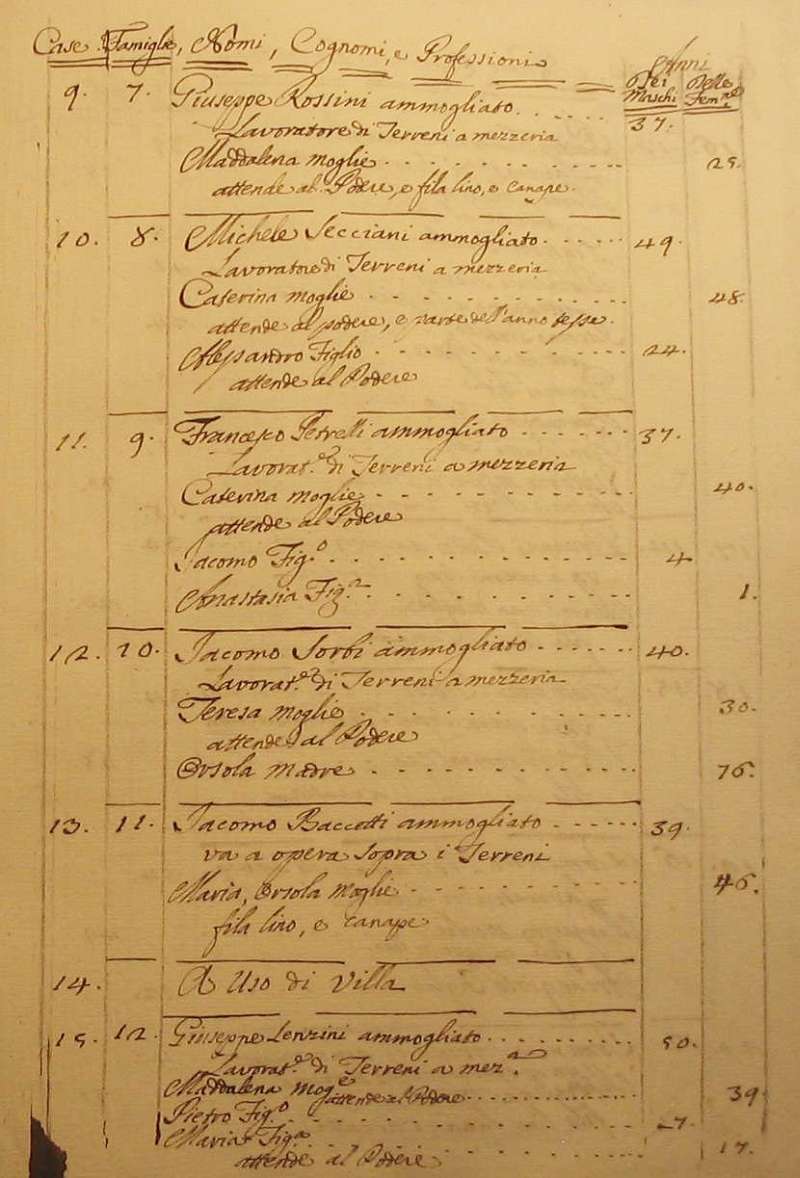 Case. Famiglie, Nomi, Cognomi, e Professioni Anni
Dei Maschi Delle Fem.ne
9. 7. Giuseppe Rossini ammogliato 37.
Lavoratore di Terreni a mezzeria
Maddalena moglie 25.
attende al Podere, e fila lino, e canape.
10. 8. Michele Secciani ammogliato 49.
Lavoratore di Terreni a mezzeria
Caterina moglie 48.
attende al podere, e parte de Panno tesse.
Alessandro Figlio 24.
attende al Podere
11. 9. Francesco Petrelli ammogliato 37.
Lavorat.e di Terreni a mezzeria
Caterina moglie 40.
attende al Podere
Jacomo Fig.o 4
Anastasia Fig.a 1.
12. 10. Jacomo Sorbi ammogliato 40.
Lavorat.e di Terreni a mezzeria
Teresa moglie 30.
attende al Podere
Orsola madre 76.
13. 11. Jacomo Baccotti ammogliato 39.
va a opera sopra i Terreni
Maria, Orsola moglie 46.
fila lino, e canape
14. A Uso di Villa
15. 12. Giuseppe Lenzini ammogliato 50.
Lavorat.e di Terreni a mez.a
Maddalena mog.e 39
attende al Podere
Pietro Fig.o 7.
Maria Fig.a 17.
attende al Podere